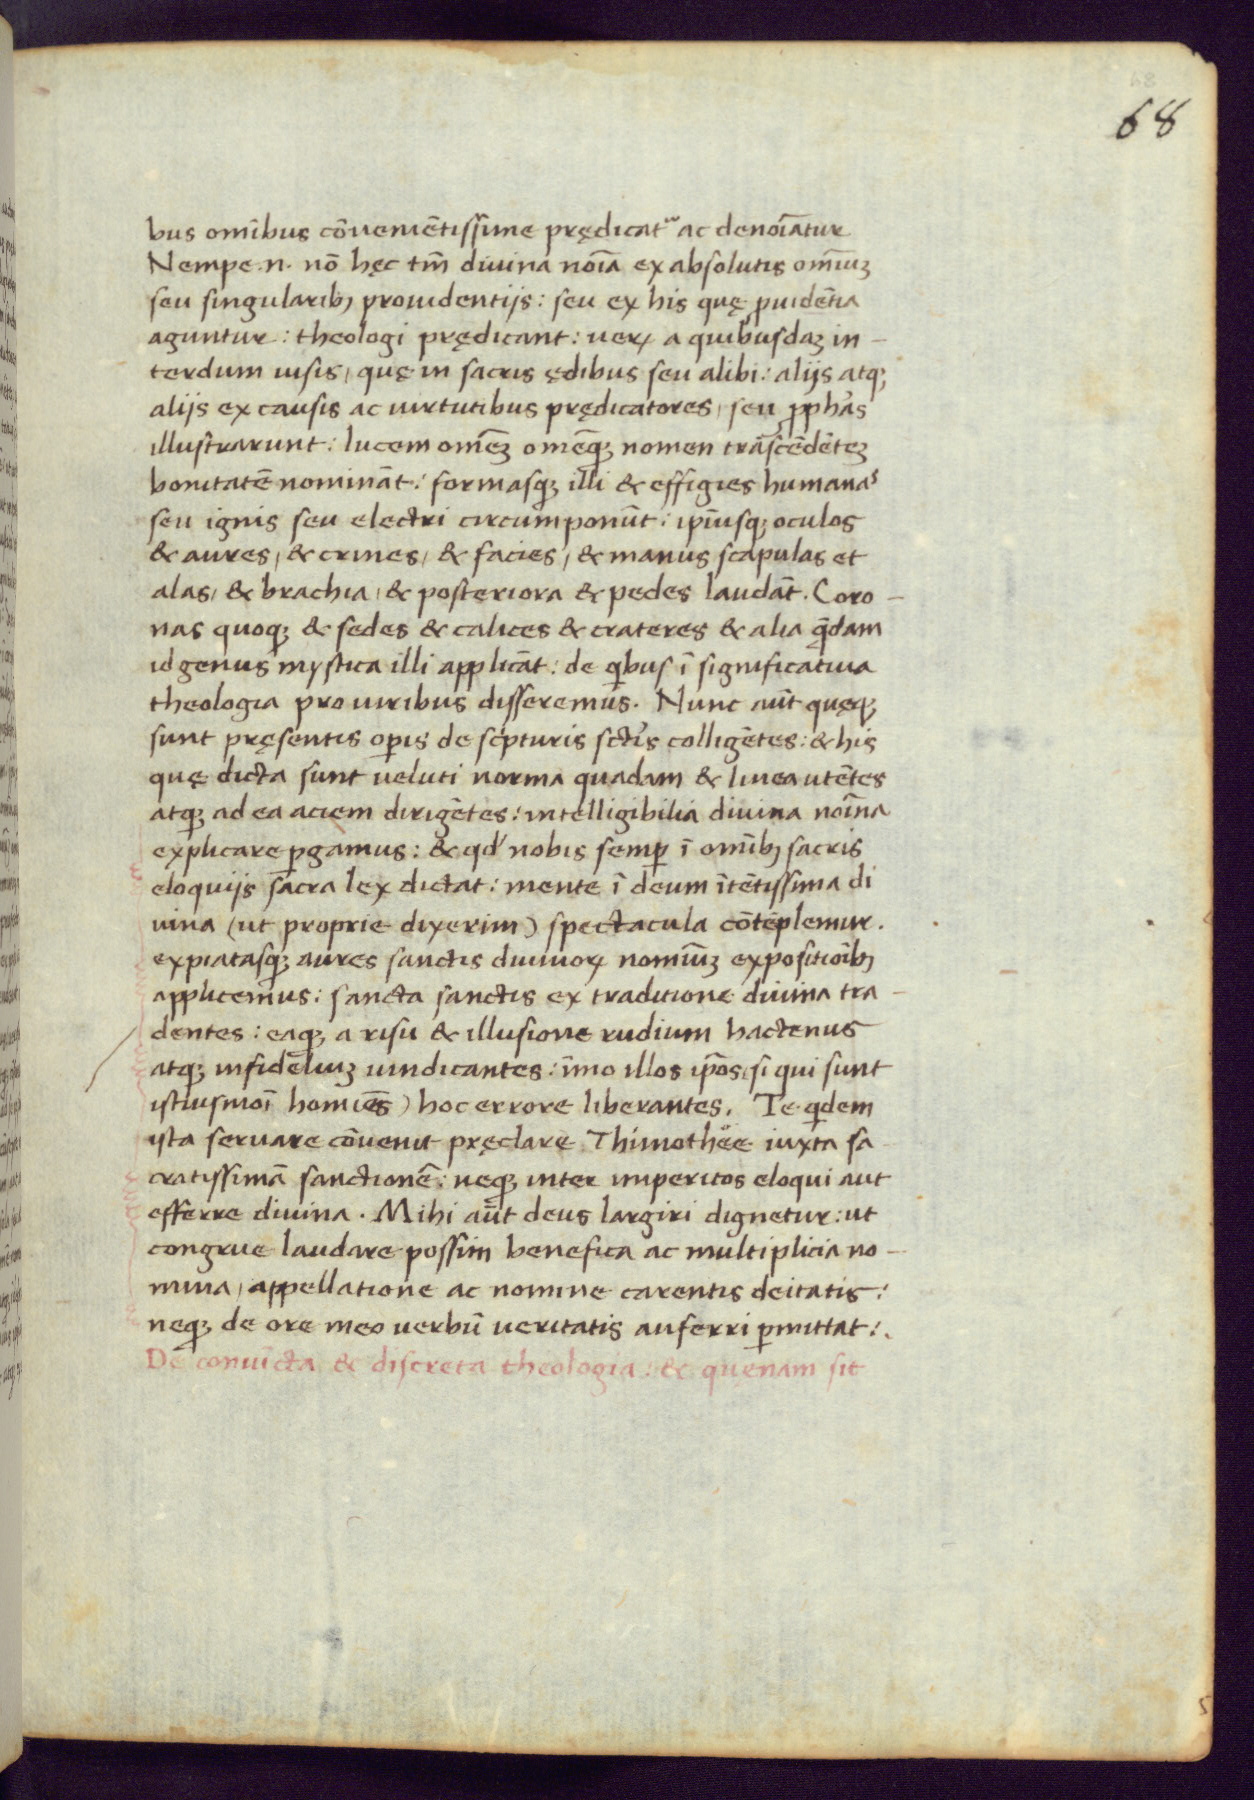 68
bus om̄ibus cōueniētissime prędicat᷑ ac denoīatur
Nempe .n. nō hęc tm̄ diuina noīa ex absolutis omīuꝫ
seu singularibꝫ prouidentijs: seu ex his quę ꝓuidētia
aguntur: theologi prędicant: ueꝝ a quibusdaꝫ in-
terdum uisis, quę in sacris ędibus seu alibi: alijs atqꝫ
alijs ex causis ac uirtutibus prędicatores, seu ꝓphās
illustrarunt: lucem omēꝫ omēqꝫ nomen trāscēdēteꝫ
bonitatē nominānt: formasqꝫ illi & effigies humanas
seu ignis seu electri circumponūt: ip̄iusqꝫ oculos
& aures, & crines, & facies, & manus scapulas et
alas, & brachia, & posteriora & pedes laudāt. Coro-
nas quoqꝫ & sedes & calices & crateres & alia q̄dam
id genus mystica illi applicāt: de qⁱbus ī significatiua
theologia pro uiribus disseremus. Nunc aūt quęqꝫ
sunt pręsentis op̄is de scⁱpturis sctīs colligētes: & his
quę dicta sunt ueluti norma quadam & linea utētes
atqꝫ ad ea aciem dirigētes: intelligibilia diuina noīna
explicare ꝑgamus: & qd' nobis semꝑ ī om̄ibꝫ sacris
eloquijs sacra lex dictat: mente ī deum ītētissima di
uina (ut proprie dixerim) spectacula cōtēplemur.
expiatasqꝫ aures sanctis diuinoꝝ nomīuꝫ expositiōibꝫ
applicemus: sancta sanctis ex traditione diuina tra-
dentes: eaqꝫ a risu & illusione rudium hactenus
atqꝫ infideliuꝫ uindicantes: īmo illos ip̄os (si qui sunt
istiusmoī homīes) hoc errore liberantes. Te qⁱdem
ista seruare cōuenit pręclare Thimothëe iuxta sa
cratissimā sanctionē: neqꝫ inter imperitos eloqui aut
efferre diuina. Mihi aūt deus largiri dignetur: ut
congrue laudare possim benefica ac multiplicia no-
mina, appellatione ac nomine carentis deitatis:
neqꝫ de ore meo uerbū ueritatis auferri ꝑmittat:.
De conuīcta & discreta theologia: & quęnam sit